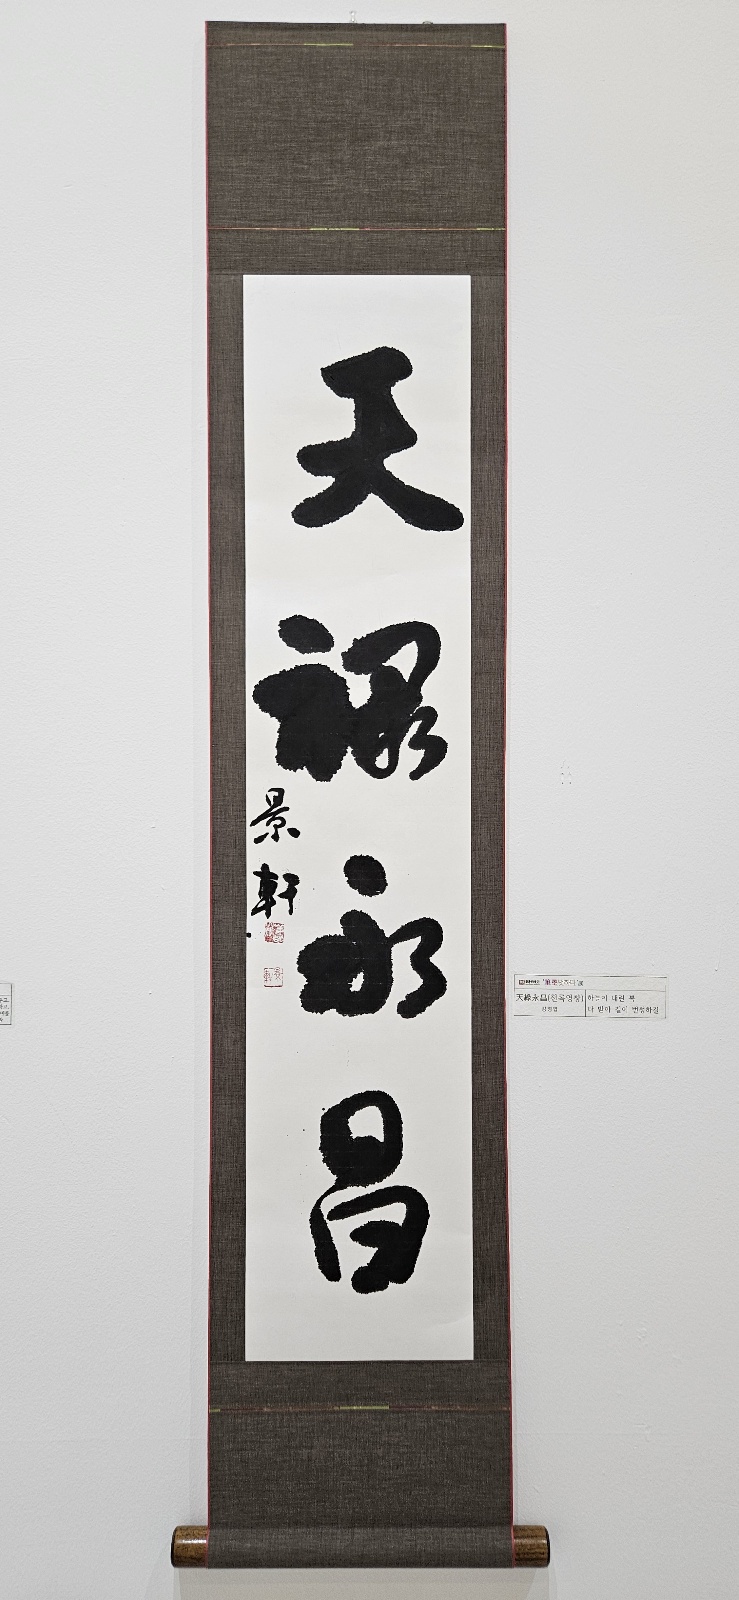 天
祿
永
昌
景
軒
天祿永昌(천록영창)
하늘이 내린 복
다 받아 길이 번성하길